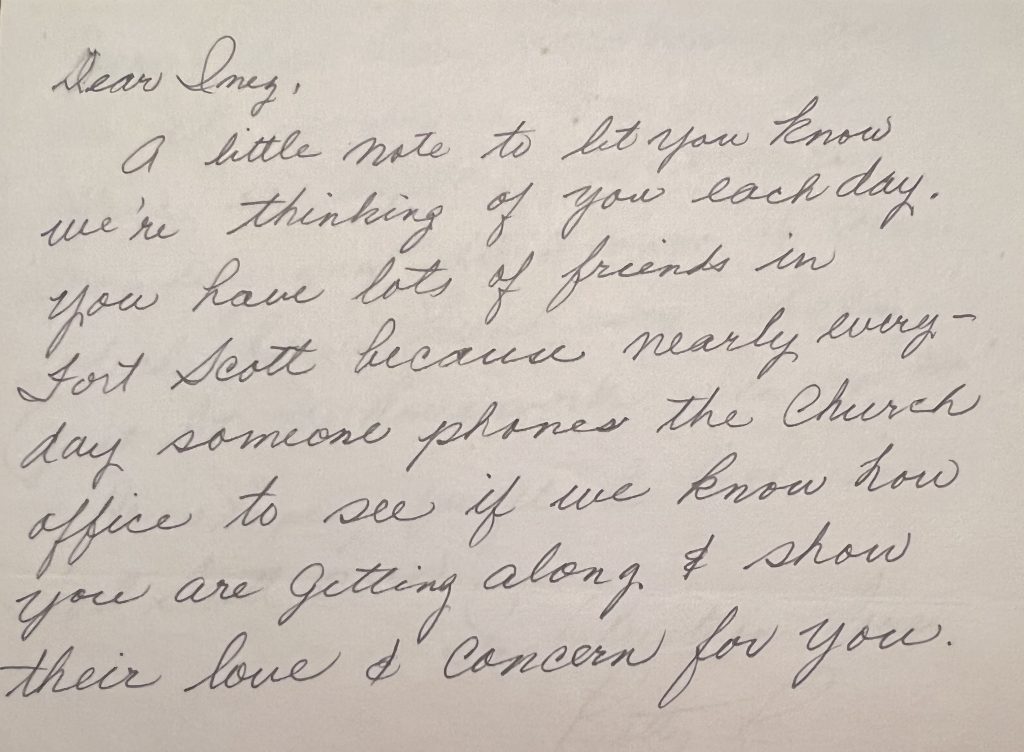 Dear Inez,
A little note to let you know
we're thinking of you each day.
You have lots of friends in
Fort Scott because nearly every-
day someone phones the Church
office to see if we know how
you are getting along & show
their love & concern for you.